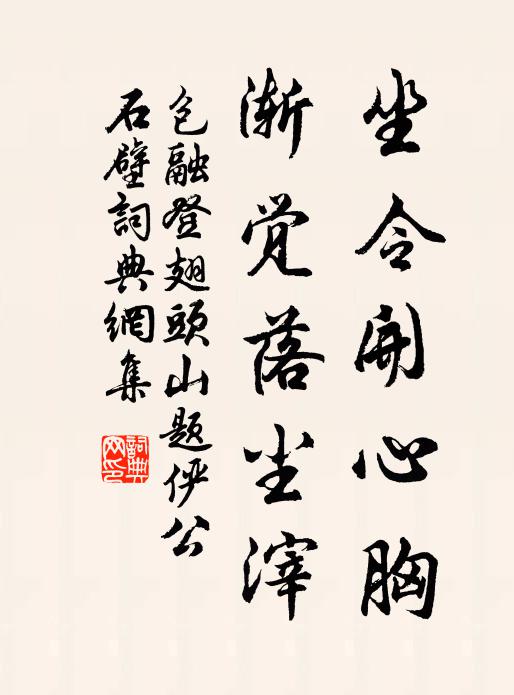 坐令開心胸
渐觉落尘滓
包融登翅頭山题俨公
石壁詞典網集
詞典
网印